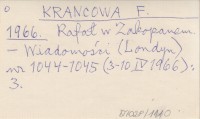 KRANCOWA F.
1966. Rafał w Zakopanem.
– Wiadomości (Londyn)
nr 1044-1045 (3-10 IV 1966):
3.